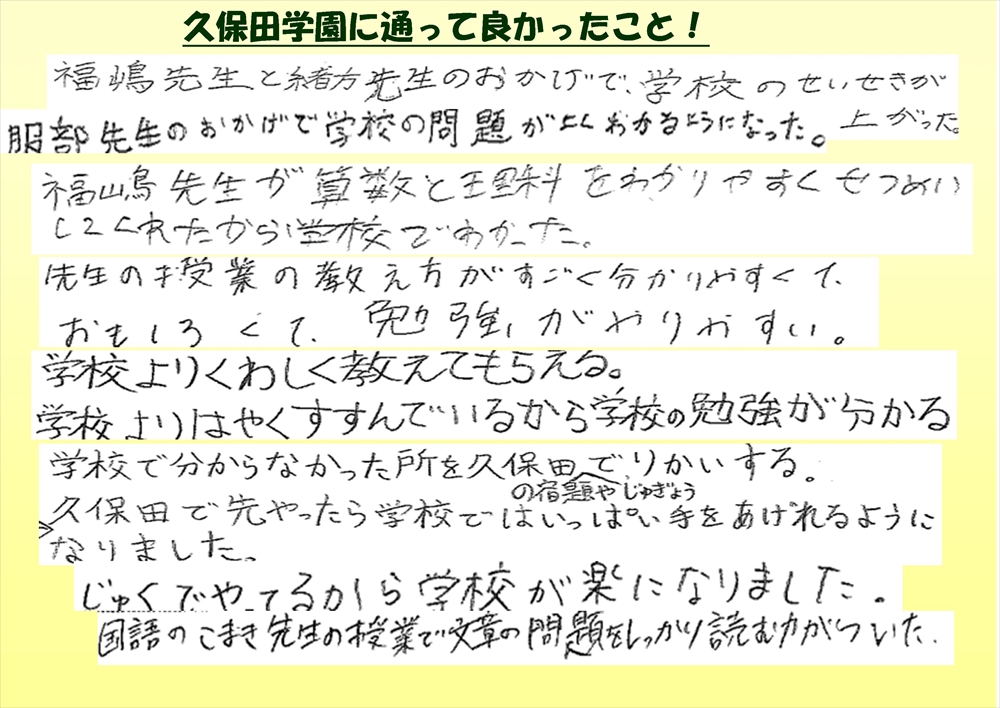 久保田学園に通って良かったこと！
福嶋先生と緒方先生のおかげで、学校のせいせきが
上がった。
服部先生のおかげで学校の問題がよくわかるようになった。
福嶋先生が算数と理科をわかりやすくせつめい
してくれたから学校でわかった。
先生の授業の教え方がすごく分かりやすくて、
おもしろくて、勉強がやりやすい。
学校よりくわしく教えてもらえる。
学校よりはやくすすんでいるから学校の勉強が分かる
学校で分からなかった所を久保田でりかいする。
の宿題やじゅぎょう
久保田で先やったら学校ではいっぱい手をあげれるように
なりました。
じゅくでやってるから学校が楽になりました。
国語のこまき先生の授業で文章の問題をしっかり読む力がついた.